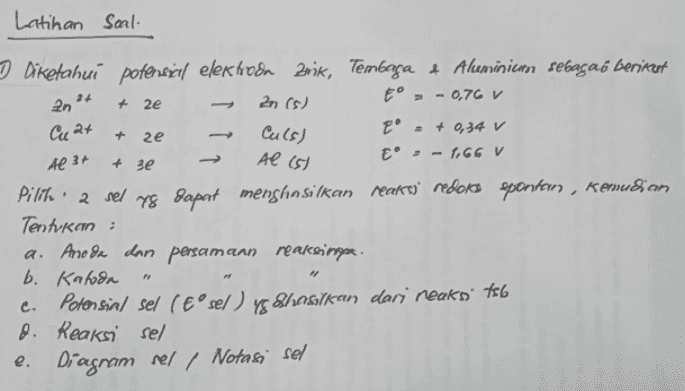 Latihan Soal.
① Diketahui potensial elektroda Zink, Tembaga & Aluminium sebagai berikut
Zn²⁺ + 2e → Zn (s) E° = - 0,76 V
Cu²⁺ + 2e → Cu (s) E° = + 0,34 V
Al³⁺ + 3e → Al (s) E° = - 1,66 V
Pilih 2 sel yg dapat menghasilkan reaksi redoks spontan, kemudian
Tentukan :
a. Anoda dan persamaan reaksinya.
b. Katoda " " "
c. Potensial sel (E° sel) yg dhasilkan dari reaksi tsb
d. Reaksi sel
e. Diagram sel / Notasi sel